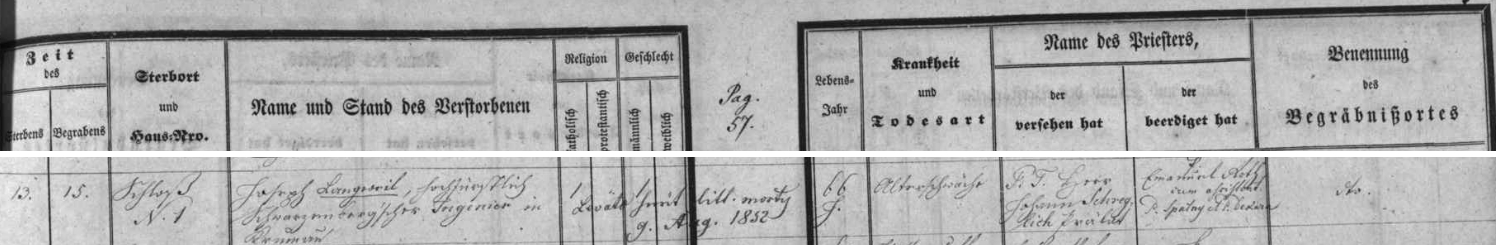 Zeit
des
Sterbens
Begrabens
Sterbort
und
Haus-Nro.
Name und Stand des Verstorbenen
Religion
katholisch
protestantisch
Geschlecht
männlich
weiblich
Pag.
57.
Lebens-
Jahr
Krankheit
und
Todesart
Name des Priesters,
der
versehen hat
der
beerdiget hat
Benennung
des
Begräbnißortes
13.
15.
Schloß
N. 1
Joseph Langweil, hochfürstlich
Schwarzenberg'scher Ingenieur in
Krumau
1
1
litt. mortis
9. Aug. 1852
66
J.
Altersschwäche
P. T. Herr
Johann
Prälat
Emanuel Roth
cum assistent.